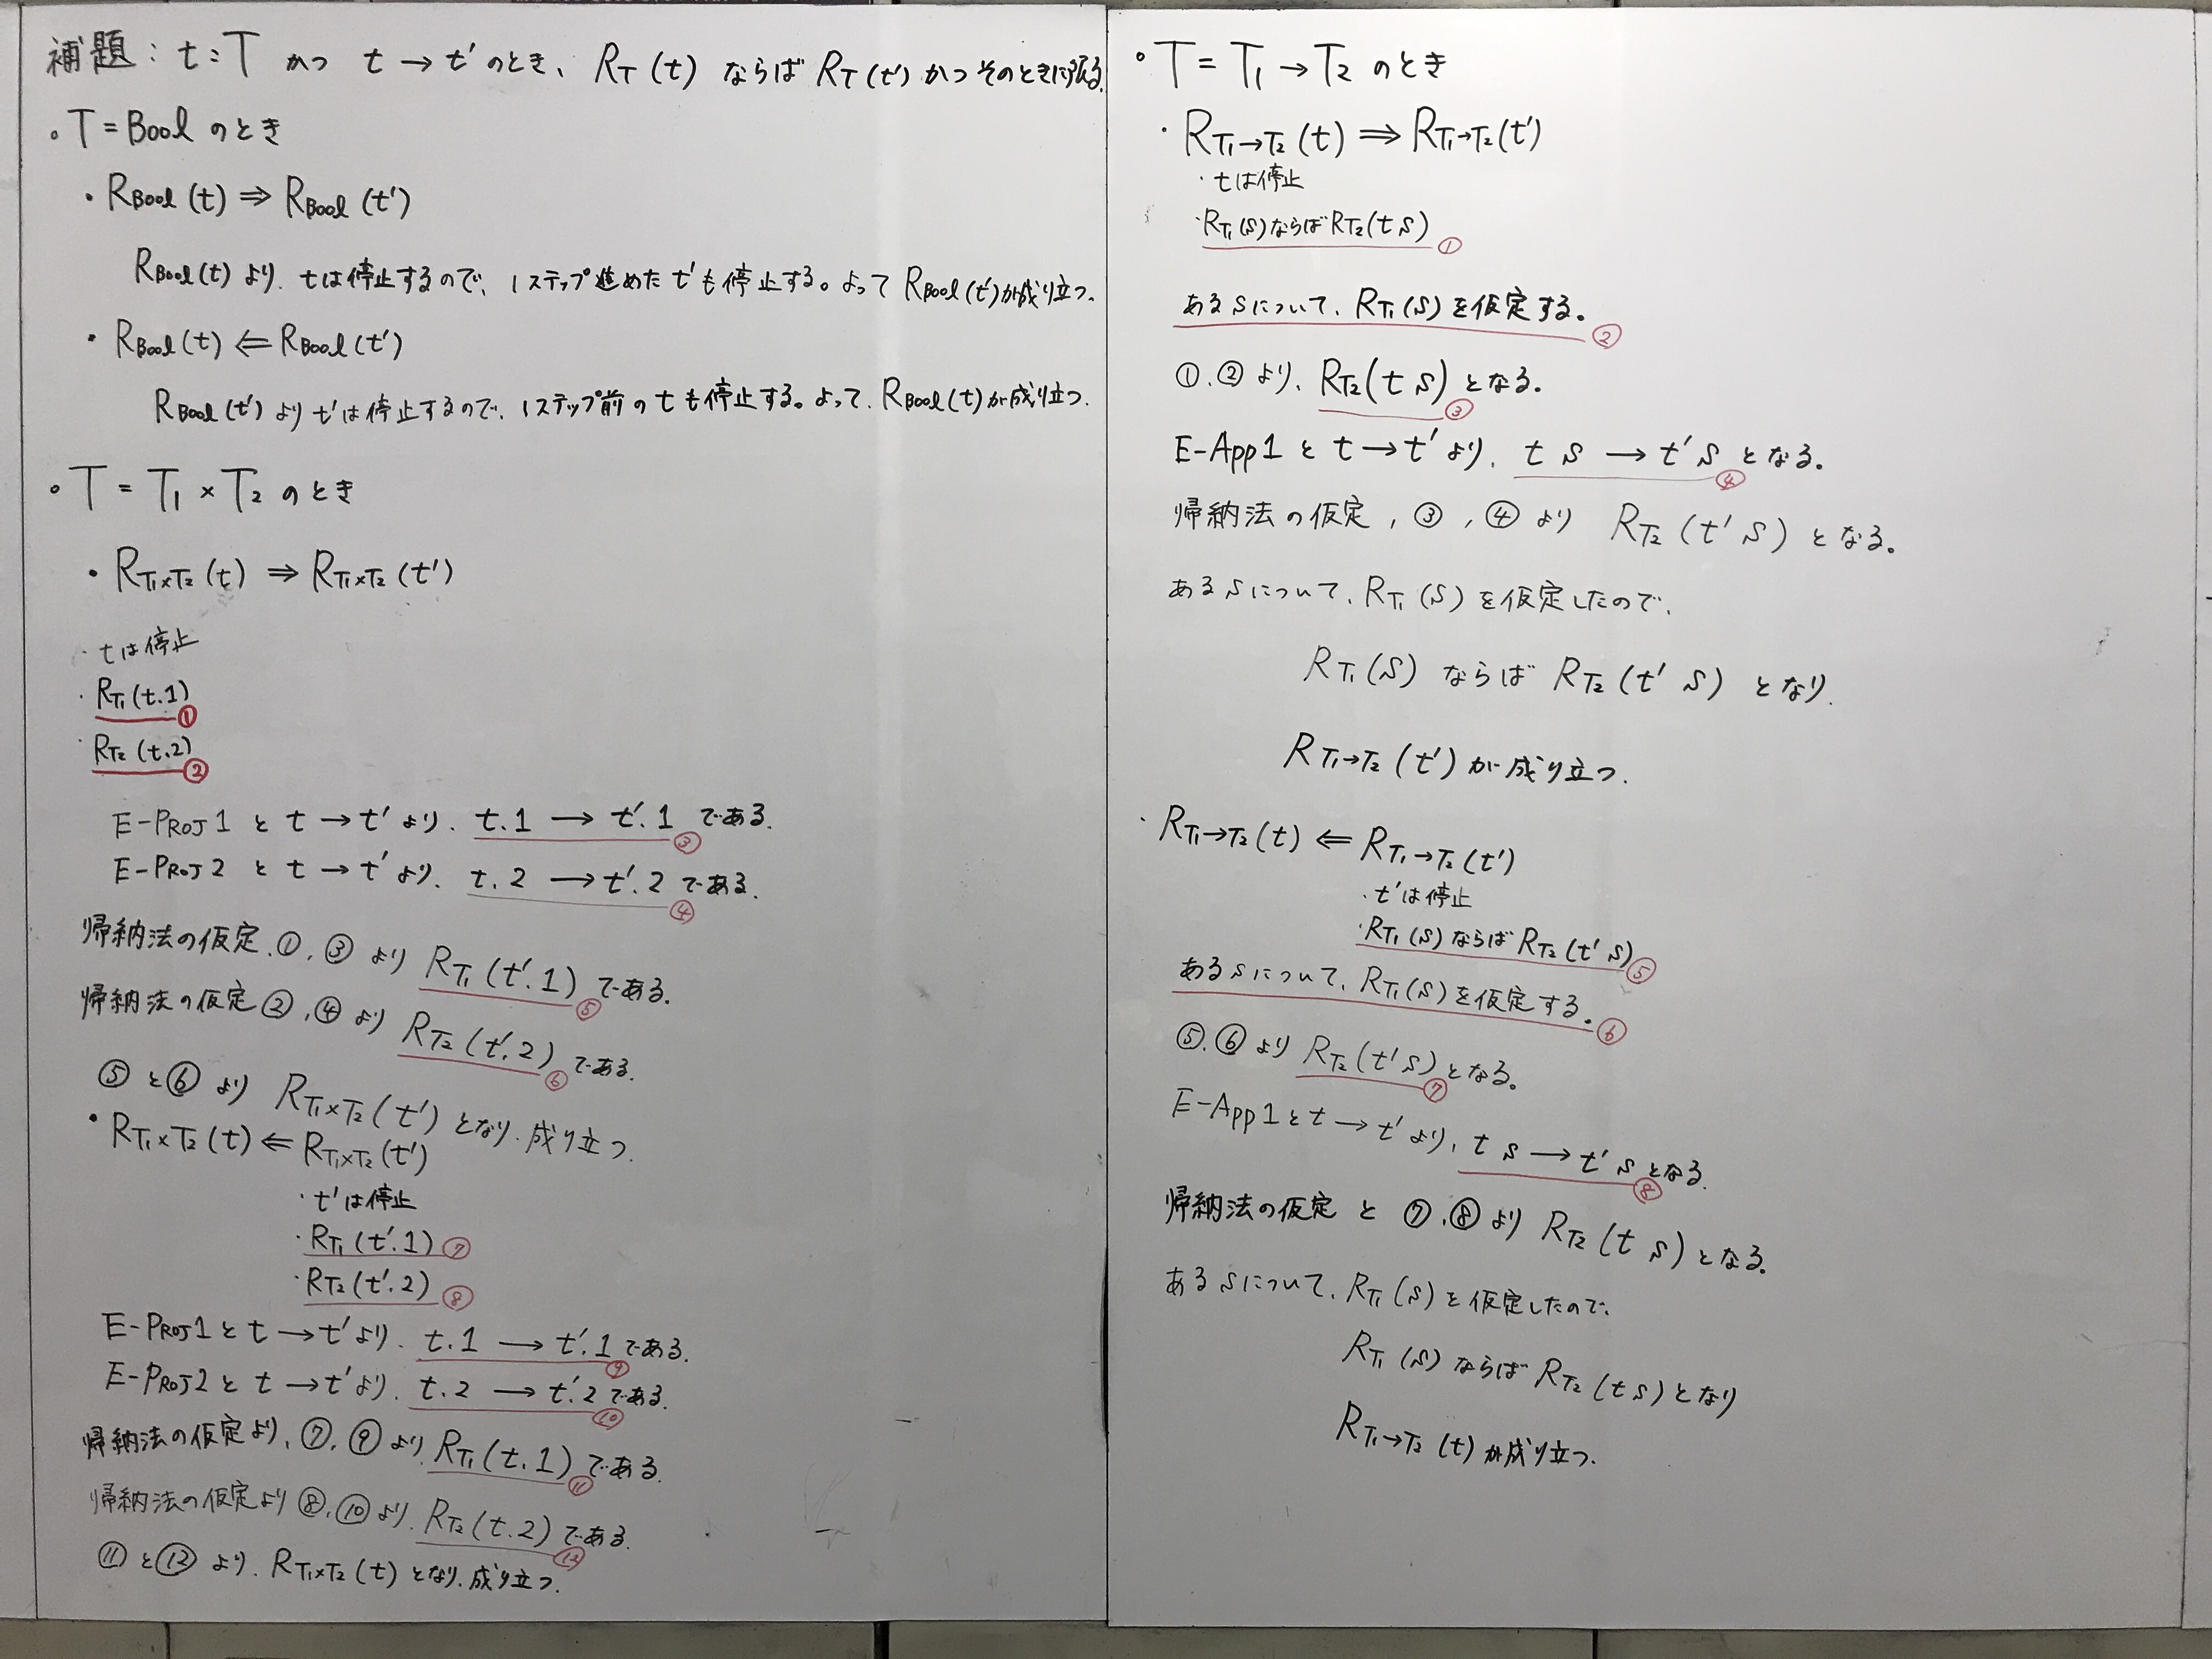 補題：t:T かつ t→t'のとき、RT(t) ならば RT(t') かつそのときに限る.
∘T=Bool のとき
・RBool(t)⇒RBool(t')
RBool(t)より、tは停止するので、1ステップ進めたt'も停止する。よってRBool(t')が成り立つ.
・RBool(t)⇐RBool(t')
RBool(t')よりt'は停止するので、1ステップ前のtも停止する。よって、RBool(t)が成り立つ.
∘T=T1×T2 のとき
・RT1×T2(t)⇒RT1×T2(t')
・tは停止
・RT1(t.1)①
・RT2(t.2)②
E-PROJ1とt→t'より、t.1→t'.1③である.
E-PROJ2とt→t'より、t.2→t'.2④である.
帰納法の仮定、①、③より RT1(t'.1)⑤である.
帰納法の仮定②、④より RT2(t'.2)⑥である.
⑤と⑥より RT1×T2(t')となり、成り立つ.
・RT1×T2(t)⇐RT1×T2(t')
・t'は停止
・RT1(t'.1)⑦
・RT2(t'.2)⑧
E-PROJ1とt→t'より、t.1→t'.1⑨である.
E-PROJ2とt→t'より、t.2→t'.2⑩である.
帰納法の仮定より、⑦、⑨より、RT1(t.1)⑪である.
帰納法の仮定より⑧、⑩より、RT2(t.2)⑫である.
⑪と⑫より、RT1×T2(t)となり、成り立つ.
∘T=T1→T2 のとき
・RT1→T2(t)⇒RT1→T2(t')
・tは停止
・RT1(s)ならばRT2(t s)①
あるsについて、RT1(s)を仮定する。②
①、②より、RT2(t s)③となる.
E-App1とt→t'より、t s→t' s④となる.
帰納法の仮定，③，④より RT2(t' s)となる。
あるsについて、RT1(s)を仮定したので、
RT1(s) ならば RT2(t' s) となり、
RT1→T2(t')が成り立つ.
・RT1→T2(t)⇐RT1→T2(t')
・t'は停止
・RT1(s)ならばRT2(t' s)⑤
あるsについて、RT1(s)を仮定する。⑥
⑤、⑥よりRT2(t' s)⑦となる。
E-App1とt→t'より、t s→t' s⑧となる.
帰納法の仮定と⑦、⑧よりRT2(t s)となる.
あるsについて、RT1(s)を仮定したので、
RT1(s)ならばRT2(t s)となり
RT1→T2(t)が成り立つ.